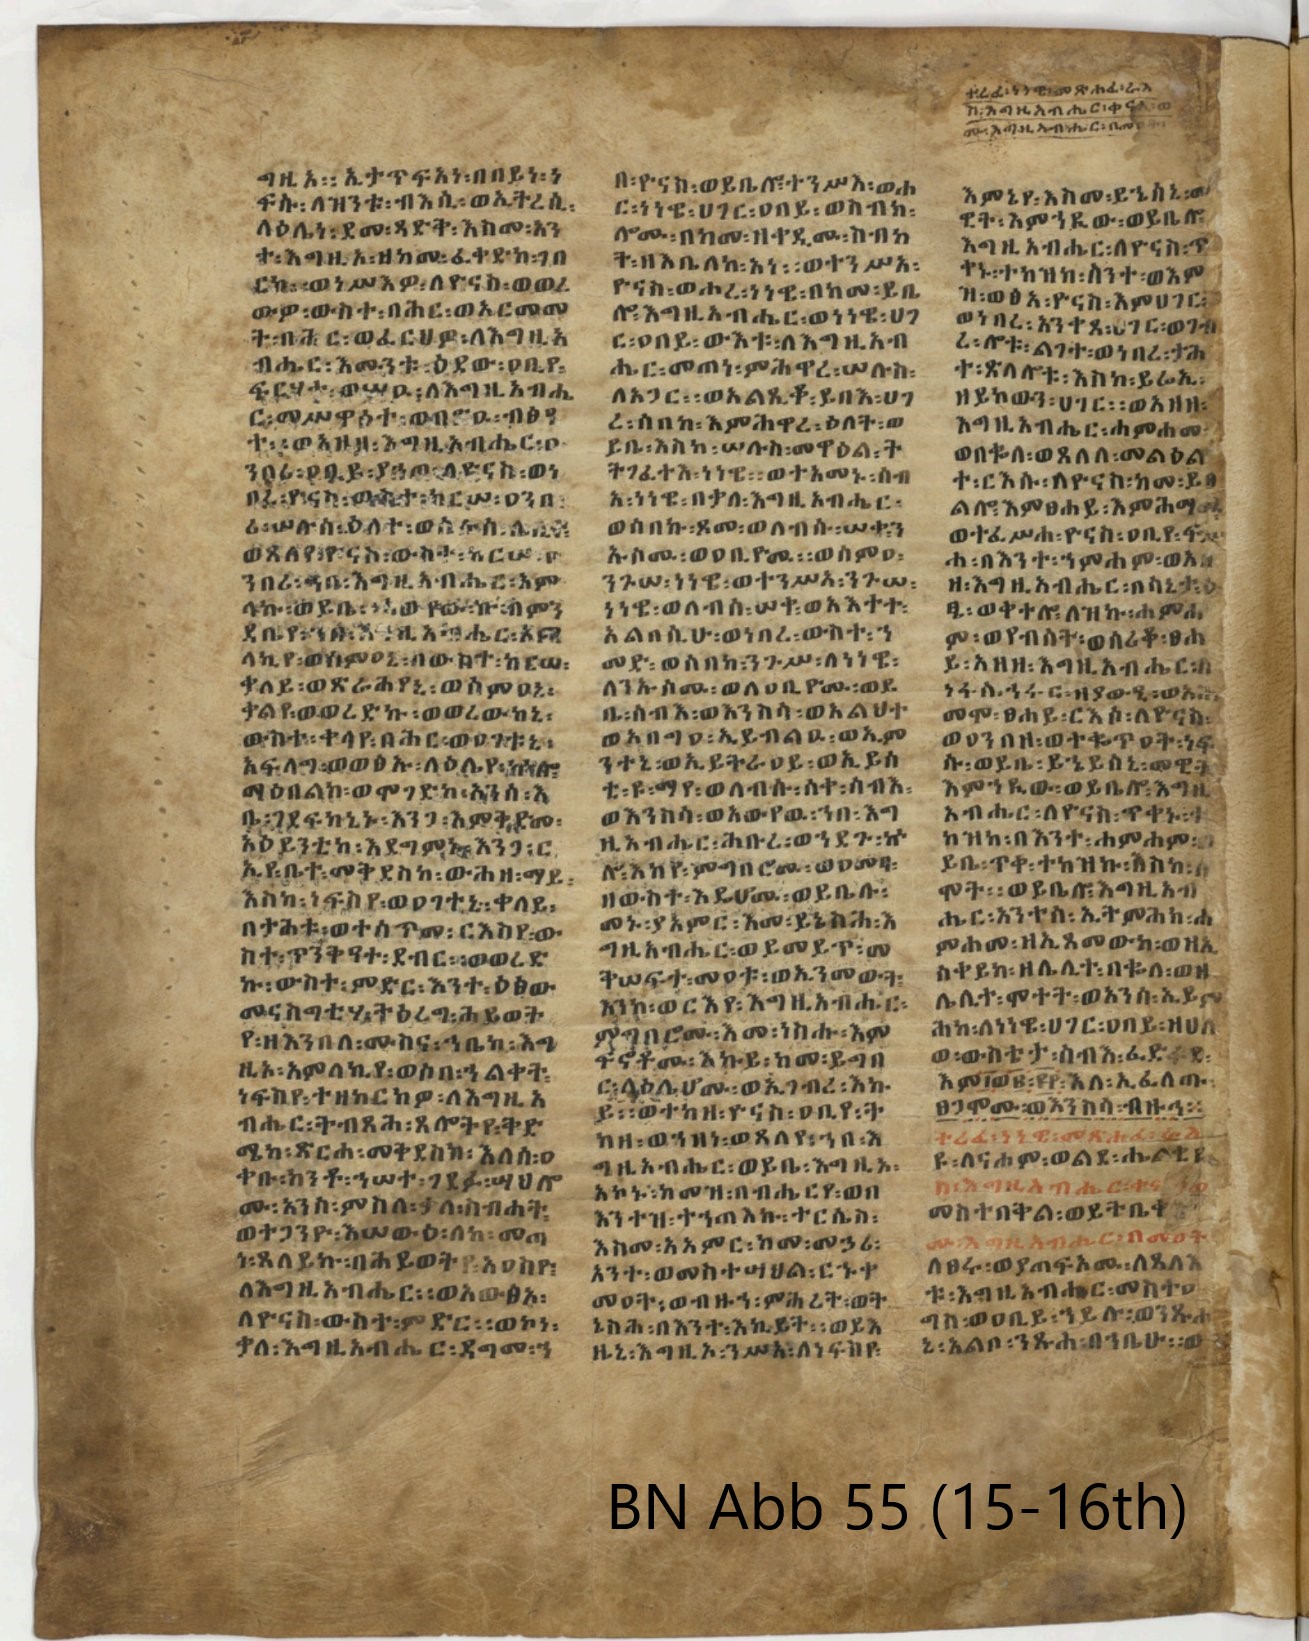 ትረፈ፡ነነዌ፡መጽሐፈ፡ራእ
ግዚአ፡፡ኢታጥፍአነ፡በበይነ፡ነ
ፍሱ፡ለዝንቱ፡ብእሲ፡ወኢትረሲ፡
ለዕሌነ፡ደመ፡ጻድቅ፡እስመ፡አን
ተ፡እግዚአ፡ዘከመ፡ፈቀድከ፡ገበ
ርከ፡፡ወነሥእዎ፡ለዮናስ፡ወወረ
ውዎ፡ውስተ፡በሕር፡ወአርመመ
ት፡በሕር፡ወፈርህዎ፡ለእግዚአ
ብሔር፡እሙንቱ፡ዕደው፡ዐቢየ፡
ፍርሃተ፡ወሦዑ፡ለእግዚአብሔ
ር፡መሥዋዕተ፡ወበፅዑ፡ብፅዓ
ተ፡፡ወአዘዘ፡እግዚአብሔር፡ዐ
ንበሪ፡ዐቢይ፡ያኀጦ፡ለዮናስ፡ወነ
በረ፡ዮናስ፡ውስተ፡ከርሠ፡ዐንበ
ሪ፡ሠሉስ፡ዕለተ፡ወሠሉስ፡ሌሊተ፡
ወጸለየ፡ዮናስ፡ውስተ፡ከርሠ፡ዐ
ንበሪ፡ኀበ፡እግዚአብሔር፡አም
ላኩ፡ወይቤ፡
ላኪየ፡ወሰምዐኒ፡በውስተ፡ከርሠ፡
ቃለይ፡ወጽራሕየኒ፡ወሰምዐኒ፡
ቃልየ፡ወወረድኩ፡ወወረውከኒ፡
ውስተ፡ቀላየ፡በሕር፡ወዐገቱኒ፡
አፍላግ፡ወወፅኡ፡ለዕሌየ፡ኵሉ፡
ማዕበልከ፡ወሞገድከ፡አንሰ፡እ
ቤ፡ገደፍከኒኑ፡እንጋ፡እምቅድመ፡
አዕይንቲከ፡እደግምኑ፡እንጋ፡ር
ኢየ፡ቤተ፡መቅደስከ፡ውሕዘ፡ማይ፡
እስከ፡ነፍስየ፡ወዐገተኒ፡ቀላይ፡
በታሕቱ፡ወተሰጥመ፡ርእስየ፡ው
ስተ፡ጥንቅዓተ፡ደብር፡፡ወወረድ
ኩ፡ውስተ፡ምድር፡እንተ፡ዕፀው
መናስግቲሃ፡ትዕረግ፡ሕይወት
የ፡ዘእንበለ፡ሙስና፡ኀቤከ፡እግ
ዚኦ፡አምላኪየ፡ወሶበ፡ኀልቀት፡
ነፍስየ፡ተዘከርክዎ፡ለእግዚአ
ብሔር፡ትብጻሕ፡ጸሎትየ፡ቅድ
ሜከ፡ጽርሐ፡መቅደስከ፡እለሰ፡ዐ
ቀቡ፡ከንቶ፡ኀሠተ፡ገደፉ፡ሣህሎ
ሙ፡አንሰ፡ምስለ፡ቃለ፡ስብሐት፡
ወተጋንዮ፡እሠውዕ፡ለከ፡መጠ
ነ፡ጸለይኩ፡በሕይወትየ፡አዐስየ፡
ለእግዚአብሔር፡፡ወአውፅአ፡
ለዮናስ፡ውስተ፡ምድር፡፡ወኮነ፡
ቃለ፡እግዚአብሔር፡ዳግመ፡ኀ
በ፡ዮናስ፡ወይቤሎ፡ተንሥእ፡ወሑ
ር፡ነነዌ፡ሀገር፡ዐባይ፡ወስብክ፡
ሎሙ፡በከመ፡ዘቀዲሙ፡ስብከ
ት፡ዘእቤለከ፡አነ፡፡ወተንሥአ፡
ዮናስ፡ወሖረ፡ነነዌ፡በከመ፡ይቤ
ሎ፡እግዚአብሔር፡ወነነዌ፡ሀገ
ር፡ዐባይ፡ውእቱ፡ለእግዚአብ
ሔር፡መጠነ፡ምሕዋረ፡ሠሉስ፡
ለእጋር፡፡ወአልጺቆ፡ይባእ፡ሀገ
ረ፡ሰበከ፡እምሕዋረ፡ዕለት፡ወ
ይቤ፡እስከ፡ሠሉስ፡መዋዕል፡ት
ትገፈታእ፡ነነዌ፡፡ወተአመኑ፡ሰብ
አ፡ነነዌ፡በቃለ፡እግዚአብሔር፡
ወሰበኩ፡ጾመ፡ወለብሱ፡ሠቀ፡ን
ኡሶሙ፡ወዐቢዮሙ፡፡ወሰምዐ፡
ንጉሠ፡ነነዌ፡ወተንሥአ፡ንጉሠ፡
ነነዌ፡ወለብሰ፡ሠቀ፡ወአእተተ፡
አልባሲሁ፡ወነበረ፡ውስተ፡ኀ
መድ፡ወሰበከ፡ንጉሥ፡ለነነዌ፡
ለንኡሶሙ፡ወለዐቢዮሙ፡ወይ
ቤ፡ሰብእ፡ወእንስሳ፡ወአልህምት
ወአባግዕ፡ኢይብልዑ፡ወኢም
ንተኒ፡ወኢይትራዐይ፡ወኢይስ
ተዩ፡ማየ፡ወለብሱ፡ሠቀ፡ሰብእ፡
ወእንስሳ፡ወአውየዉ፡ኀበ፡እግ
ዚአብሔር፡ሕቡረ፡ወኀደጉ፡ኵ
ሎ፡እከየ፡ምግባሮሙ፡ወዐመፃ፡
ዘውስተ፡እደዊሆሙ፡ወይቤሉ፡
መኑ፡ያአምር፡እመ፡ይኔስሕ፡እ
ግዚአብሔር፡ወይመይጥ፡መ
ቅሠፍተ፡መዐቱ፡ወኢንመውት፡
እንከ፡ወርእየ፡እግዚአብሔር፡
ምግባሮሙ፡እመ፡ነስሑ፡እም
ፍኖቶሙ፡እኩይ፡ከመ፡ይግበ
ር፡ላዕሌሆሙ፡ወኢገብረ፡እኩ
የ፡፡ወተከዘ፡ዮናስ፡ዐቢየ፡ት
ካዘ፡ወኀዘነ፡ወጸለየ፡ኀበ፡እ
ግዚአብሔር፡ወይቤ፡እግዚኦ፡
አኮኑ፡ከመዝ፡በብሔርየ፡ወበ
እንተዝ፡ተኀጣእኩ፡ተርሴስ፡
እስመ፡አአምር፡ከመ፡መኃሪ፡
አንተ፡ወመስተሣህል፡ርኁቀ
መዐት፡ወብዙኀ፡ምሕረት፡ወት
ኔስሕ፡በእንተ፡እኪይት፡፡ወይእ
ዜኒ፡እግዚኦ፡ንሥአ፡ለነፍስየ፡
እምኔየ፡እስመ፡ይኄይሰኒ፡መ
ዊት፡እምኀዪው፡ወይቤሎ፡
እግዚአብሔር፡ለዮናስ፡ጥ
ቀኑ፡ተከዝከ፡ስንተ፡ወእም
ዝ፡ወፅአ፡ዮናስ፡እምሀገር፡
ወነበረ፡አንቀጸ፡ሀገር፡ወገብ
ረ፡ሎቱ፡ልገተ፡ወነበረ፡ታሕ
ተ፡ጽላሎቱ፡እስከ፡ይሬኢ፡
ዘይከውን፡ሀገር፡፡ወአዘዘ፡
እግዚአብሔር፡ሐምሐመ
ወበቈለ፡ወጸለለ፡መልዕል
ተ፡ርእሱ፡ለዮናስ፡ከመ፡ይፀ
ልሎ፡እምፀሐይ፡
ወተፈሥሐ፡ዮናስ፡ዐቢየ፡ፍሥ
ሐ፡በእንተ፡ኀምሐም፡ወአዘ
ዘ፡እግዚአብሔር፡በሳኒታ፡ዕ
ፄ፡ወቀተሎ፡ለዝኩ፡ሐምሐ
ም፡ወየብሰት፡ወሰሪቆ፡ፀሐ
ይ፡አዘዘ፡እግዚአብሔር፡ለ
መሞ፡ፀሐይ፡ርእሰ፡ለዮናስ፡
ወዐንበዘ፡ወተቈጥዐት፡ነፍ
ሱ፡ወይቤ፡ይኄይሰኒ፡መዊት
እምኀዪው፡ወይቤሎ፡እግዚ
አብሔር፡ለዮናስ፡ጥቀኑ፡ተ
ከዝከ፡በእንተ፡ሐምሐም፡
ይቤ፡ጥቀ፡ተከዝኩ፡እስከ፡ለ
ሞት፡፡ወይቤሎ፡እግዚአብ
ሔር፡አንተሰ፡ኢትምሕክ፡ሐ
ምሐመ፡ዘኢጻመውከ፡ወዘኢ
ሐቀይከ፡ዘሌሊተ፡በቈለ፡ወዘ
ሌሊተ፡ሞተት፡ወአንሰ፡ኢይም
ሕክ፡ለነነዌ፡ሀገር፡ዐባይ፡ዘሀለ
ወ፡ውስቴታ፡ሰብእ፡ፈድፋደ፡
እም፲ወ፪፡፼፡እለ፡ኢፈለጡ
ፀጋሞሙ፡ወእንስሳ፡ብዙኅ፡፡
ትረፈ፡ነነዌ፡መጽሐፈ፡ራእ
ዩ፡ለናሖም፡ወልደ፡ሔልቄዩ
መስተበቅል፡ወይትቤቀ
ሙ፡እግዚአብሔር፡በመዐት
ለፀሩ፡ወያጠፍኦሙ፡ለጸላእ
ቱ፡እግዚአብሔር፡መስተዐ
ግስ፡ወዐቢይ፡ኀይሉ፡ወንጹሐ
ኒ፡አልቦ፡ንጹሐ፡በኀቤሁ፡፡ወ
BN Abb 55 (15-16th)